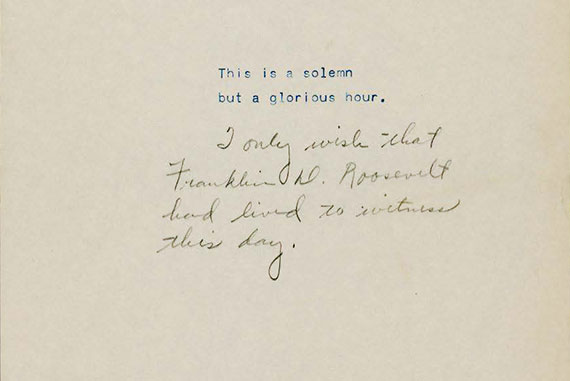 This is a solemn
but a glorious hour.
I only wish that
Franklin D. Roosevelt
had lived to witness
this day.